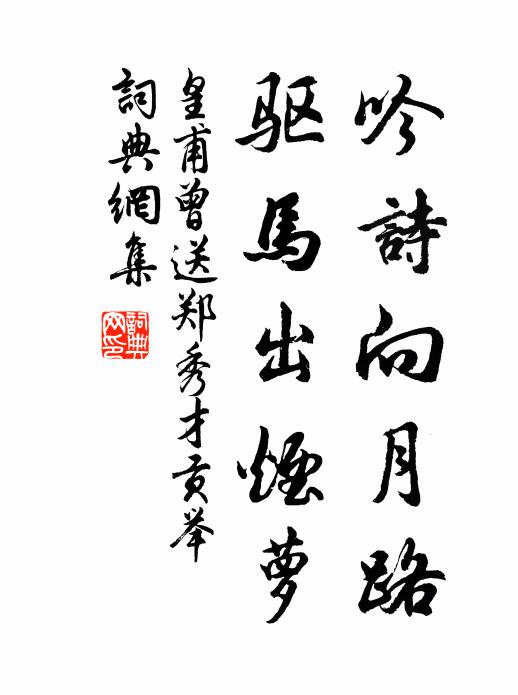 吟詩向月路
驱馬出煙萝
皇甫曾送郑秀才贡举
詞典網集
詞典网印